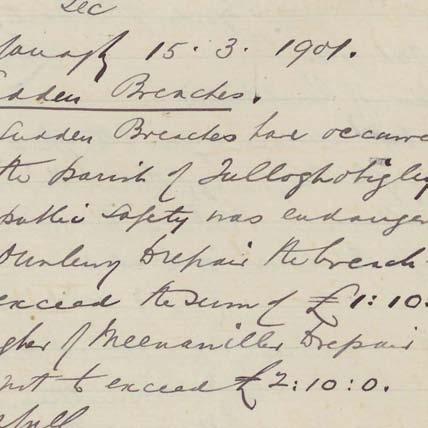 Sec
15. 3. 1901.
Sudden Breaches.
Sudden Breaches have occurre
the parish of Tulloghobigly
public safety was endanger
to repair the breach
exceed the sum of £1:10:
of Meenaviller to repair
not to exceed £2:10:0.